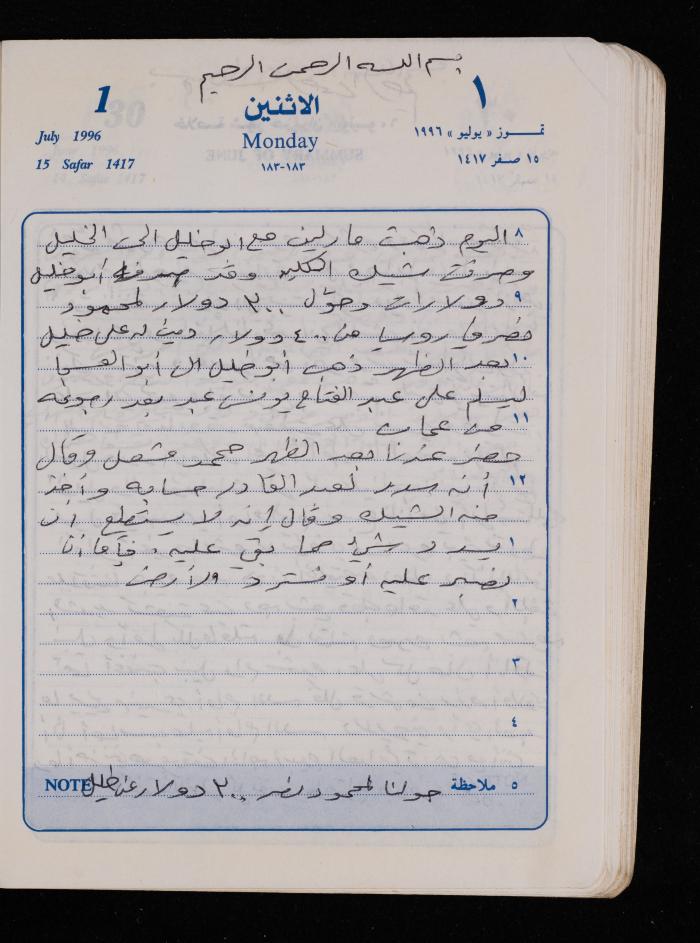 بسم الله الرحمن الرحيم
1 الاثنين ١
July 1996 Monday تموز « يوليو » ١٩٩٦
15 Safar 1417 ١٨٣-١٨٣ ١٥ صفر ١٤١٧
٨ اليوم ذهبت مارلين مع ابو خليل الى الخليل
وصرفت شيك الكلية وقد أبو خليل
٩ دولارات وحوّل ٣٠٠ دولار لمحمود
خضر في روسيا من ٤٠٠ دولار دين له على خليل
١٠ بعد الظهر ذهب أبو خليل الى أبو
ليسلم على عبد الفتاح يونس بعد رجوعه
١١ من عمان
حضر عندنا بعد الظهر محمد مشعل وقال
١٢ أنه سدد لعبد القادر حسابه وأخذ
منه الشيك وقال إنه لا يستطيع أن
١ يسدد شيء مما بقي عليه، فإما أن
نصبر عليه أو نسترد الأرض
٢
٣
٤
NOTE ٥ ملاحظة حولنا لمحمود خضر ٣٠٠ دولار عن خليل